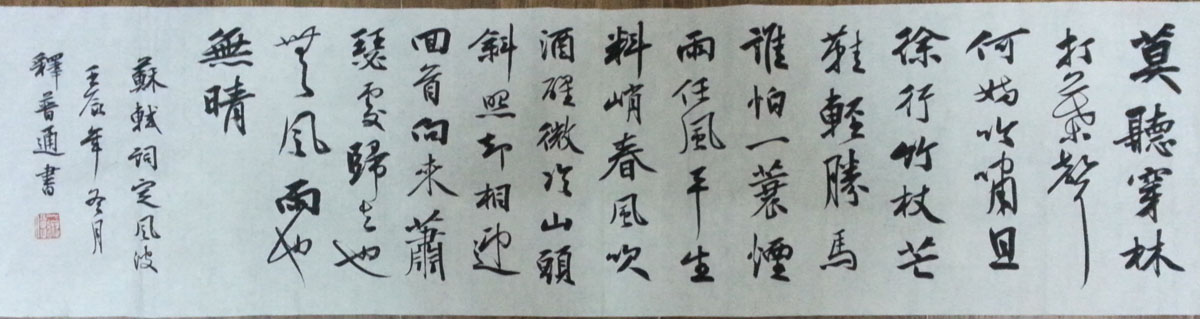 莫聽穿林
打葉聲
何妨吟嘯且
徐行竹杖芒
鞋輕勝馬
誰怕一蓑煙
雨任風平生
料峭春風吹
酒醒微冷山頭
斜照却相迎
回首向來蕭
瑟處歸去也
無風雨也
無晴
蘇軾詞定風波
壬辰年冬月
釋普通書